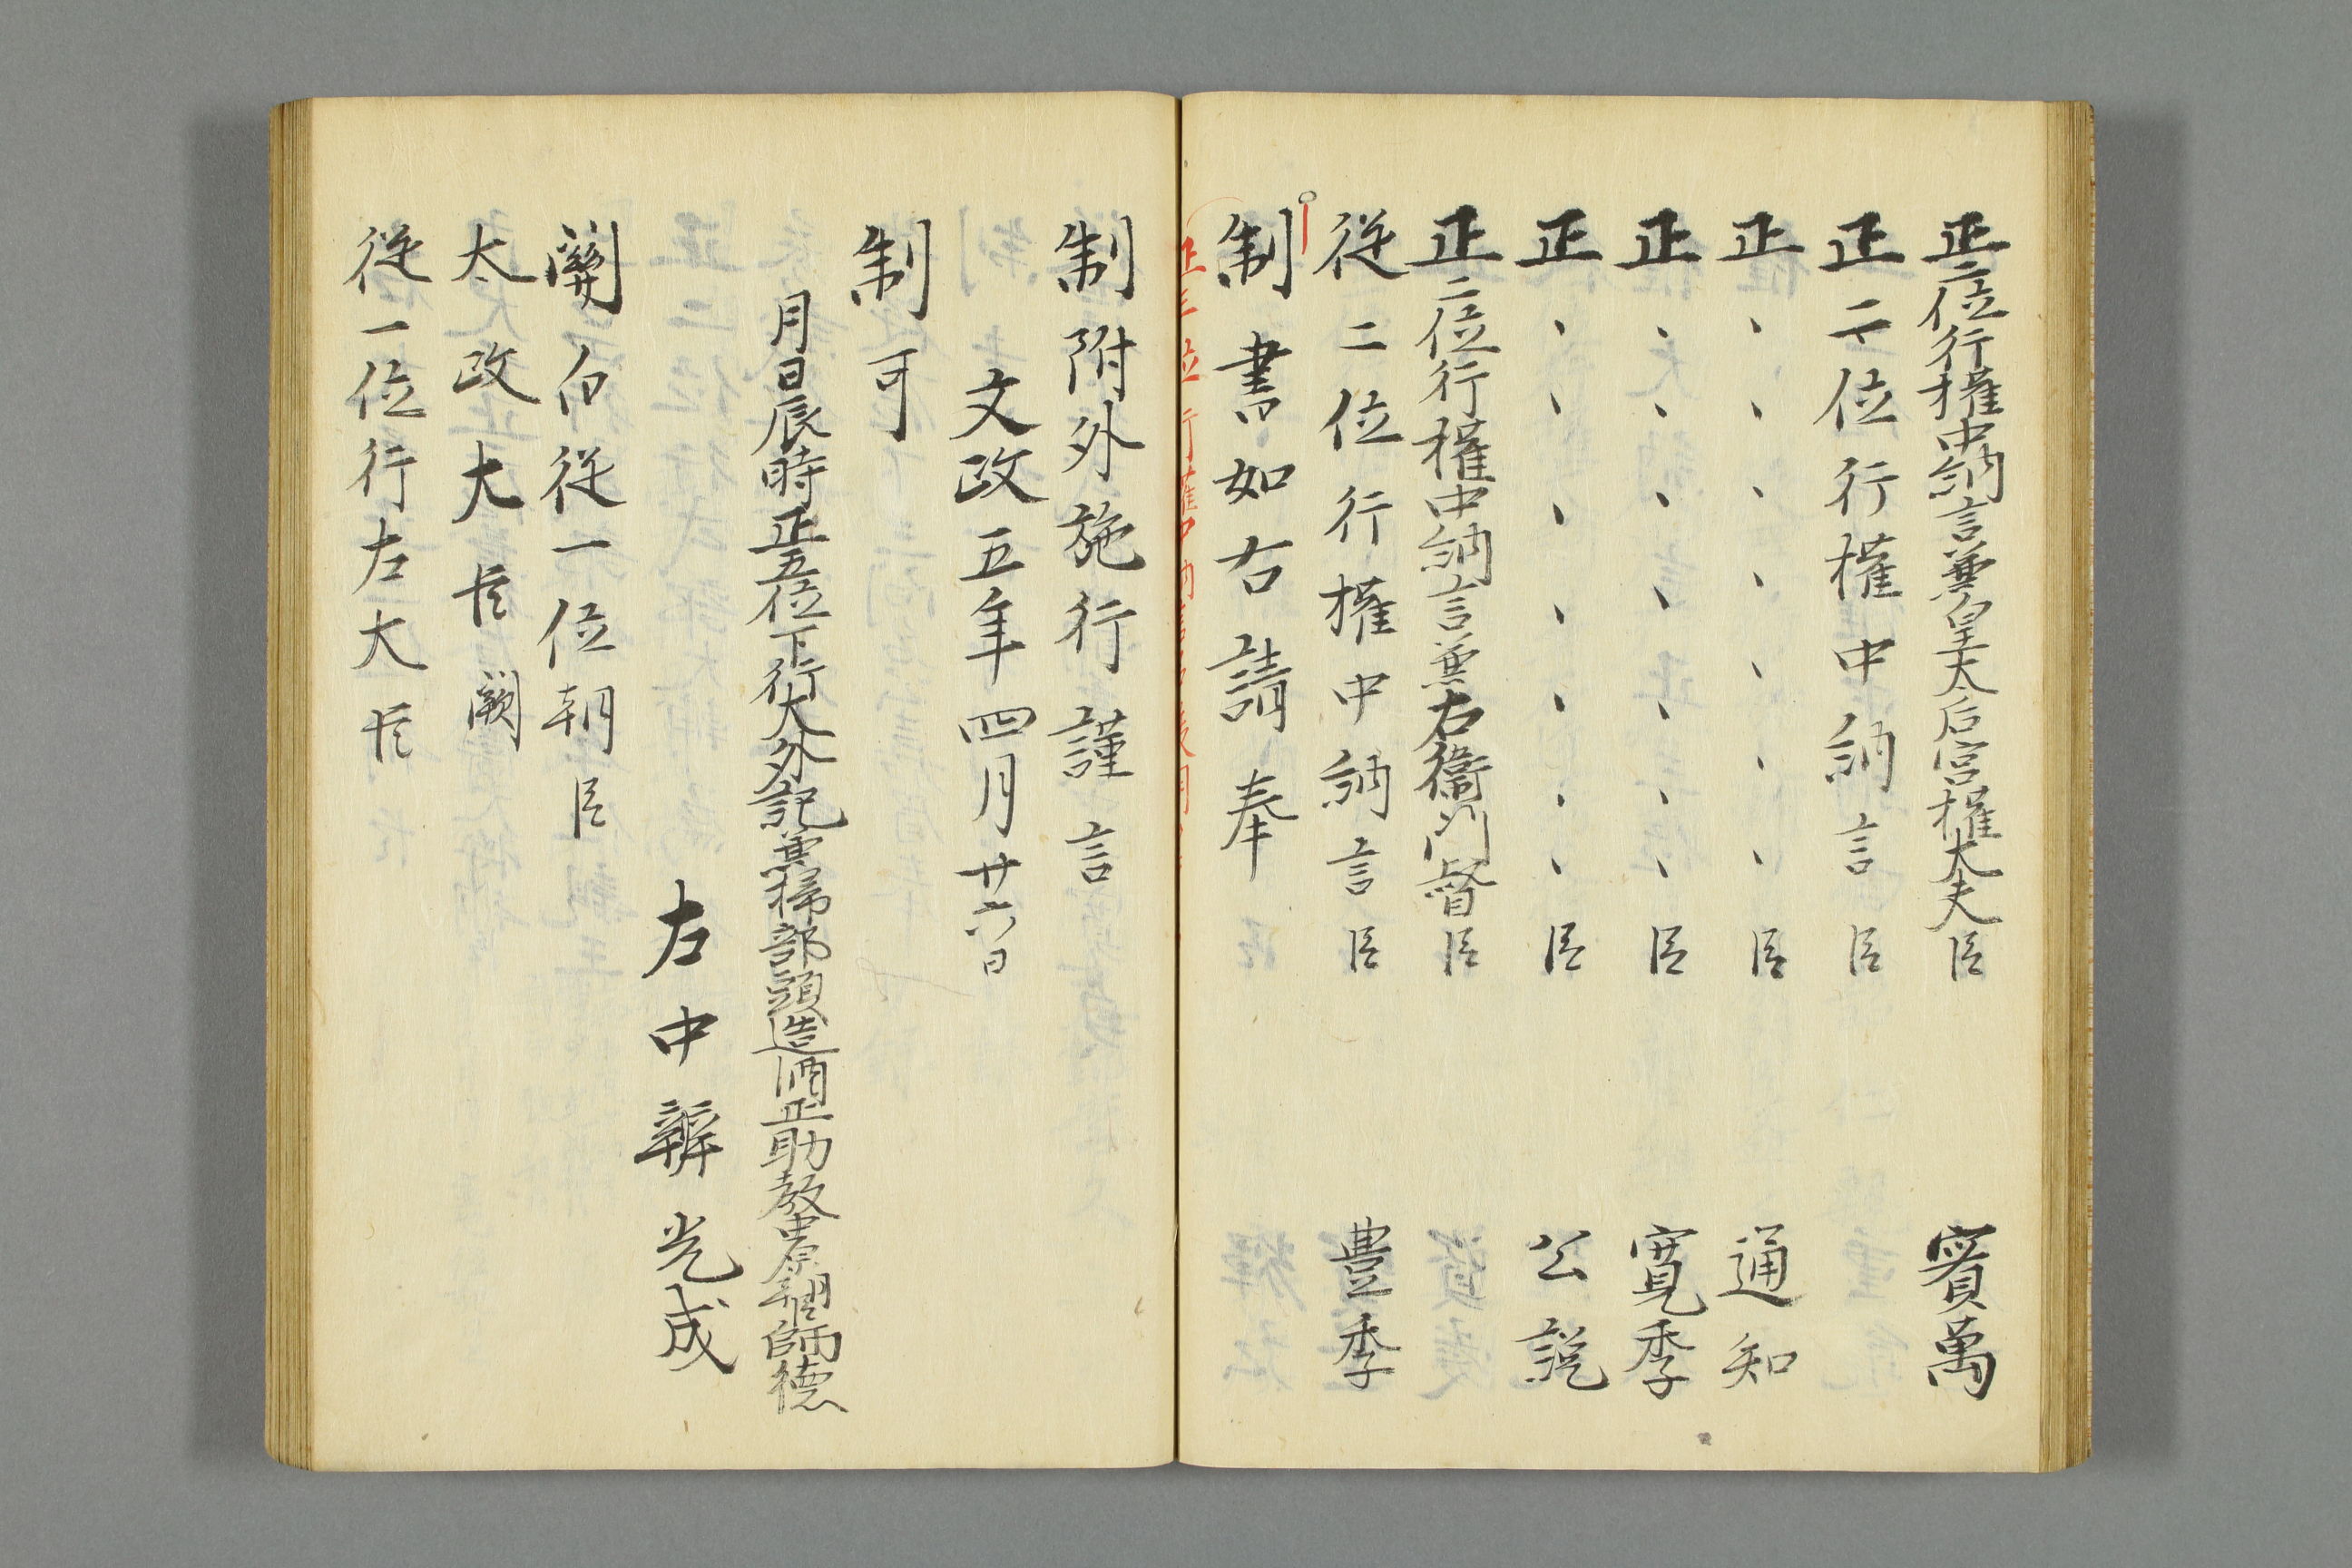 正二位行權中納言兼皇太后宮權大夫臣　實萬
正二位行權中納言臣
正、、、、、、臣　通知
正、、、、、、臣　寛季
正、、、、、、臣　公説
正二位行權中納言兼右衛門督臣
従二位行權中納言臣　豊季
制書如右請奉
正三位行權中納言
制附外施行謹言
文政五年四月廿六日
制可
月日辰時正五位下行大外記兼掃部頭造酒正助教中原朝臣師徳
左中辨光成
關白従一位朝臣
太政大臣闕
従一位行左大臣